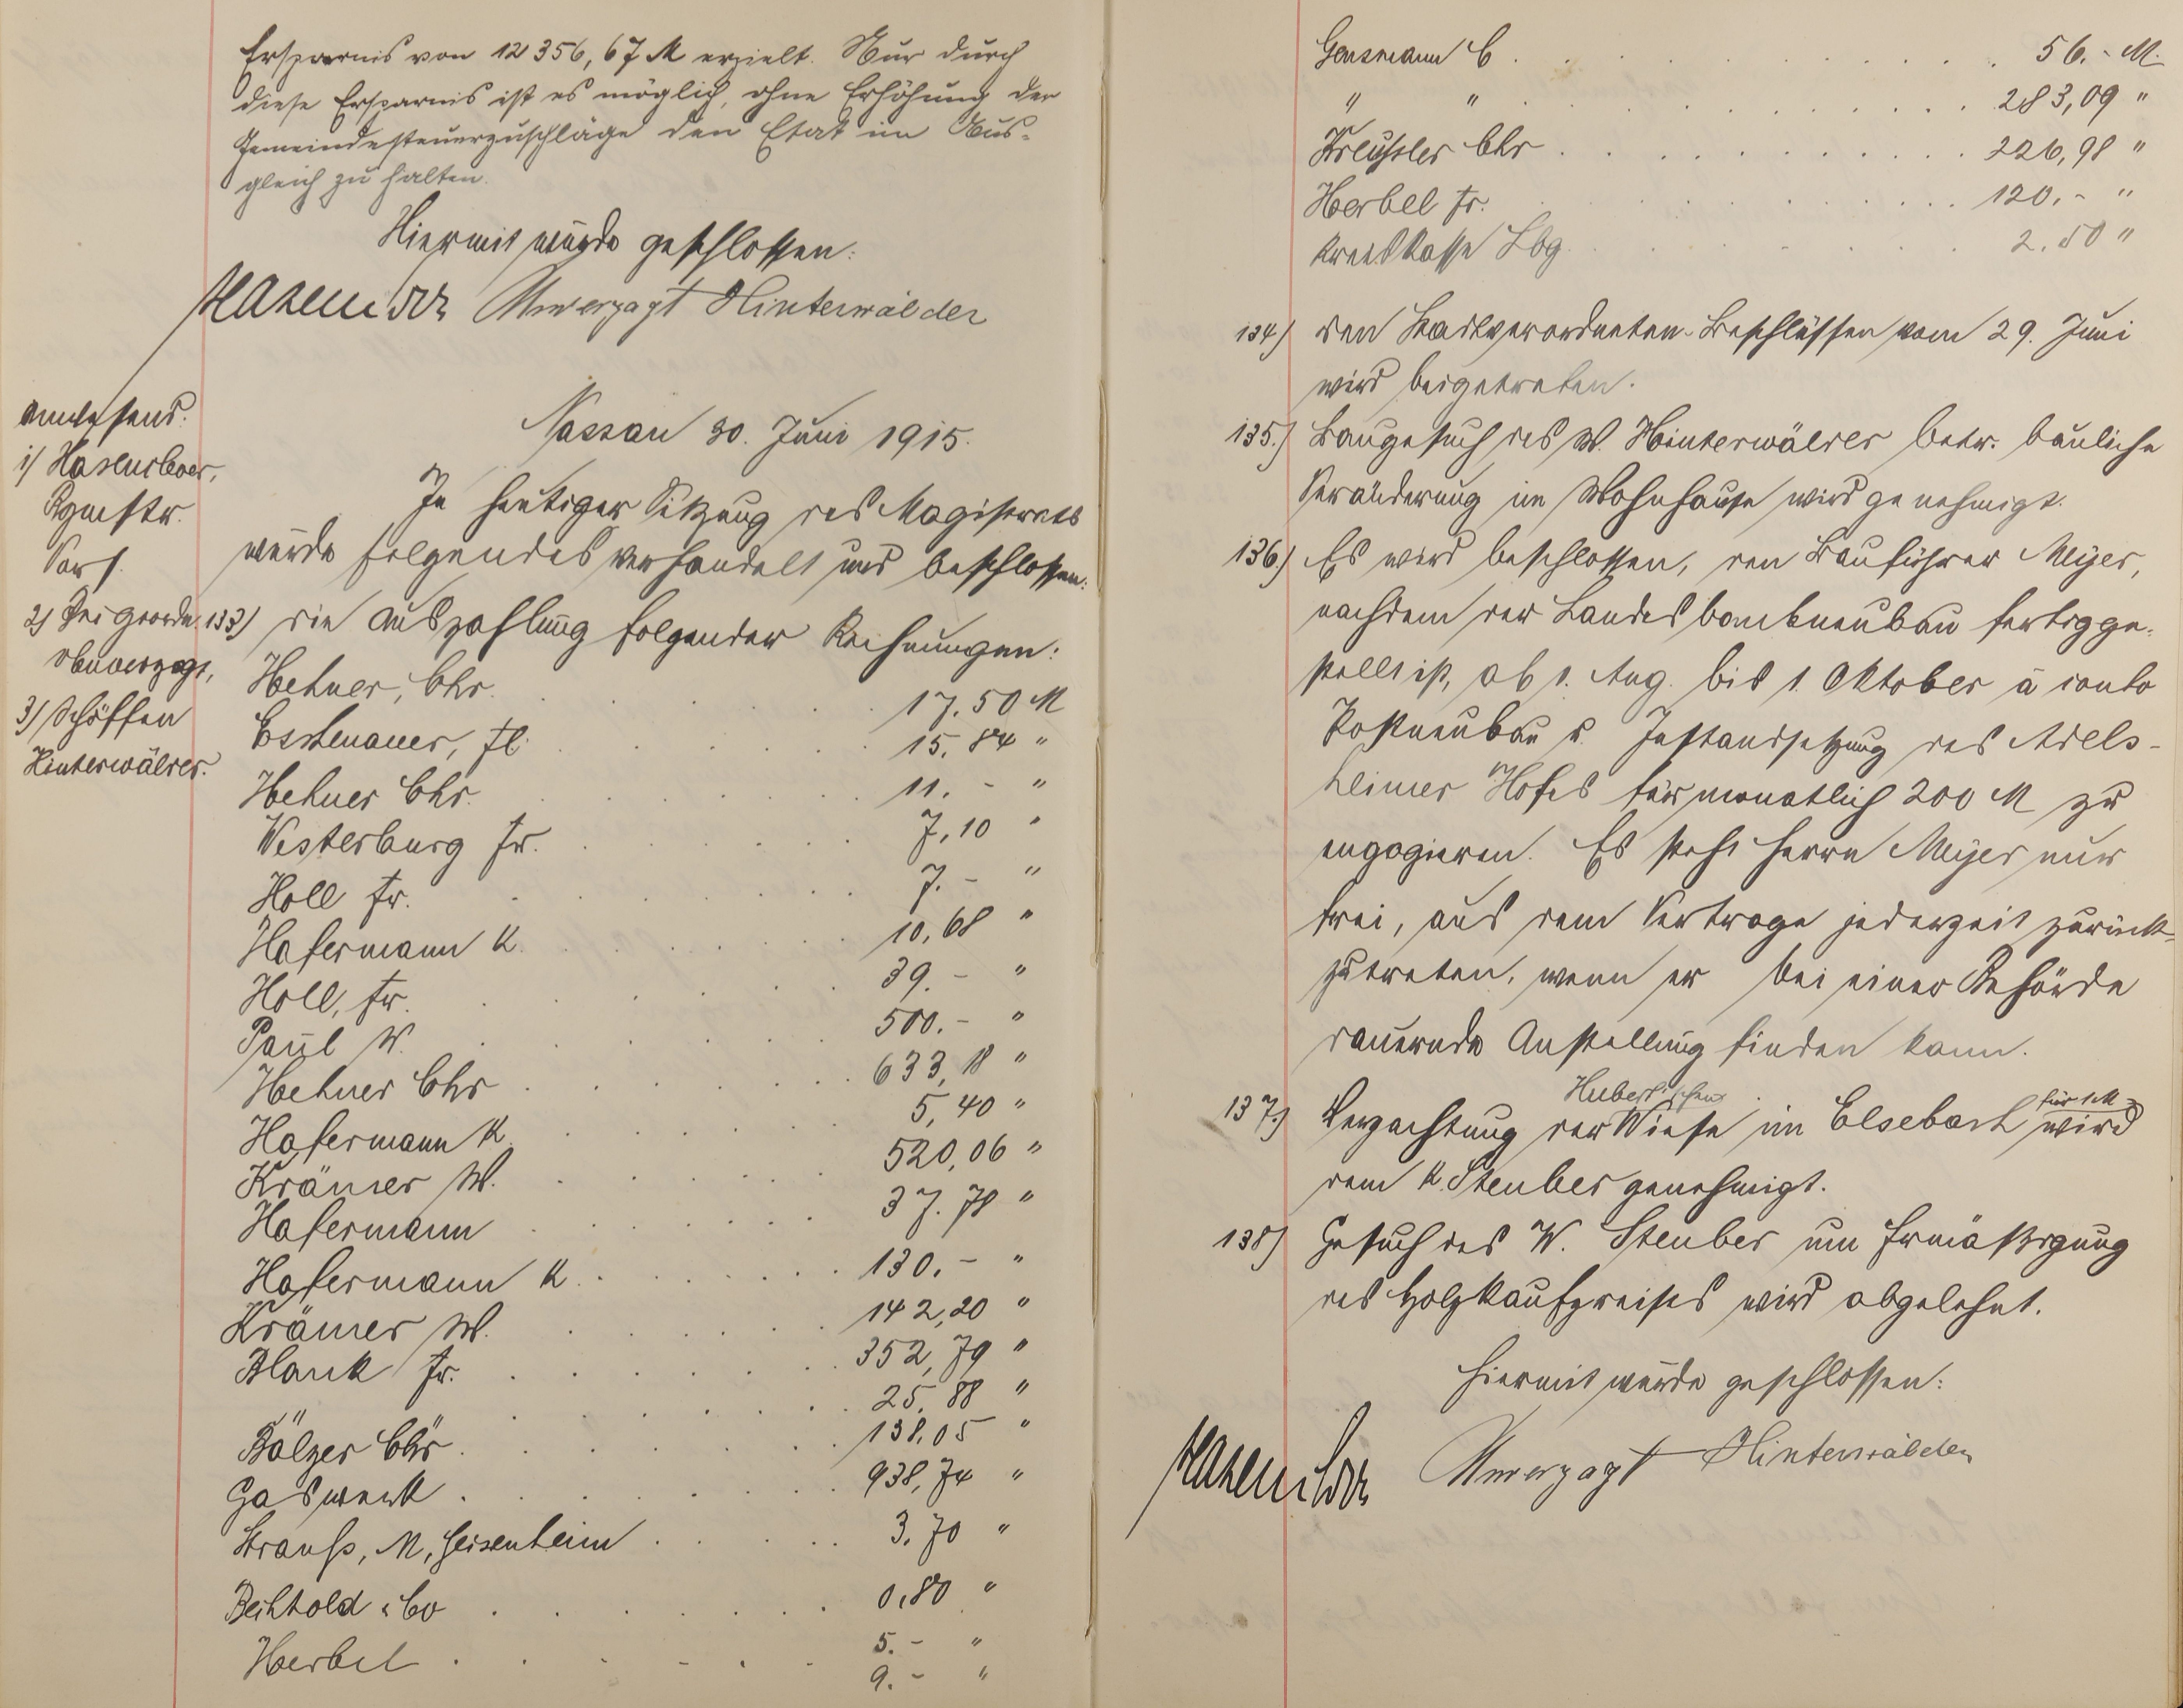 Ersparnis von 12 356,67 M erzielt. Nur durch
diese Ersparnis ist es möglich, ohne Erhöhung der
Gemeindesteuerzuschläge den Etat im Aus-
gleich zu halten.
Hiermit wurde geschlossen:
Hasenclever Unverzagt Hinterwälder
Anwesend:
1) Hasenclever,
Bgmstr.
Vors.
2) Beigeordn.
Unverzagt,
3) Schöffen
Hinterwälder.
Nassau 30. Juni 1915.
In heutiger Sitzung des Magistrats
wurde folgendes verhandelt und beschlossen:
133) die Auszahlung folgender Rechnungen:
Hehner, Chr. 17.50 M
Eschenauer, Fl. 15.84 "
Hehner Chr. 11. - "
Westerburg Fr. 7,10 "
Holl Fr. 7. - "
Hafermann K. 10,68 "
Holl, Fr. 39. - "
Paul W. 500. - "
Hehner Chr 633,18 "
Hafermann K. 5,40 "
Krämer W. 520,06 "
Hafermann 37.78 "
Hafermann K. 130. - "
Krämer W. 142,20 "
Blank Fr. 352,79 "
25,88 "
Bölzer Chr. 138,05 "
Gaswerk 938,74 "
Strauß, M, Geisenheim 3.70 "
Bechtold & Co 0,80 "
Herbel 5. - "
9. - "
Gensmann C 56. - M.
" " 283,09 "
Kreußler Chr 226,98 "
Herbel Fr. 120. - "
Kreiskasse Lbg. 2.50 "
134) den Stadtverordneten-Beschlüssen vom 29. Juni
wird beigetreten.
135.) Baugesuch des W. Hinterwälder betr. bauliche
Veränderung im Wohnhause wird genehmigt.
136.) Es wird beschlossen, den Bauführer Meyer,
nachdem der Landesbankneubau fertigge-
stellt ist, ab 1. Aug. bis 1 Oktober à conto
Postneubau u. Instandsetzung des Adels-
heimer Hofes für monatlich 200 M zu
engagieren. Es steht Herrn Meyer nur
frei, aus dem Vertrage jederzeit zurück-
zutreten, wenn er bei einer Behörde
dauernde Anstellung finden kann.
137.) Verpachtung der Hubert'schen Wiese im Elsebach für 1 M wird
dem K. Steuber genehmigt.
138) Gesuch des W. Steuber um Ermäßigung
des Holzkaufpreises wird abgelehnt.
Hiermit wurde geschlossen:
Hasenclever Unverzagt Hinterwälder